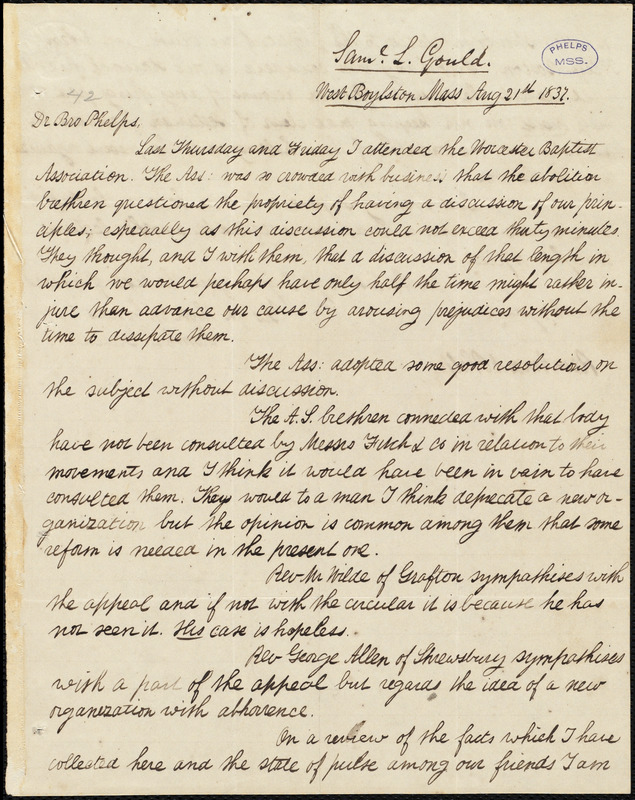 Saml. L. Gould.
PHELPS
MSS.
West Boylston Mass Aug 21th 1837.
42
Dr Bro Phelps,
Last Thursday and Friday I attended the Worcester Baptist
Association. The Ass: was so crowded with business that the abolition
brethren questioned the propriety of having a discussion of our prin-
ciples; especially as this discussion could not exceed thirty minutes.
They thought, and I with them, that a discussion of that length in
which we would perhaps have only half the time might rather in-
jure than advance our cause by arousing prejudices without the
time to dissipate them.
The Ass: adopted some good resolutions on
the subject without discussion.
The A.S. brethren connected with that body
have not been consulted by Messrs Fitch & co in relation to their
movements and I think it would have been in vain to have
consulted them. They would to a man I think deprecate a new or-
ganization but the opinion is common among them that some
reform is needed in the present one.
Rev Mr Wilde of Grafton sympathises with
the appeal and if not with the circular it is because he has
not seen it. His case is hopeless.
Rev George Allen of Shrewsbury sympathises
with a part of the appeal but regards the idea of a new
organization with abhorence.
On a review of the facts which I have
collected here and the state of pulse among our friends I am